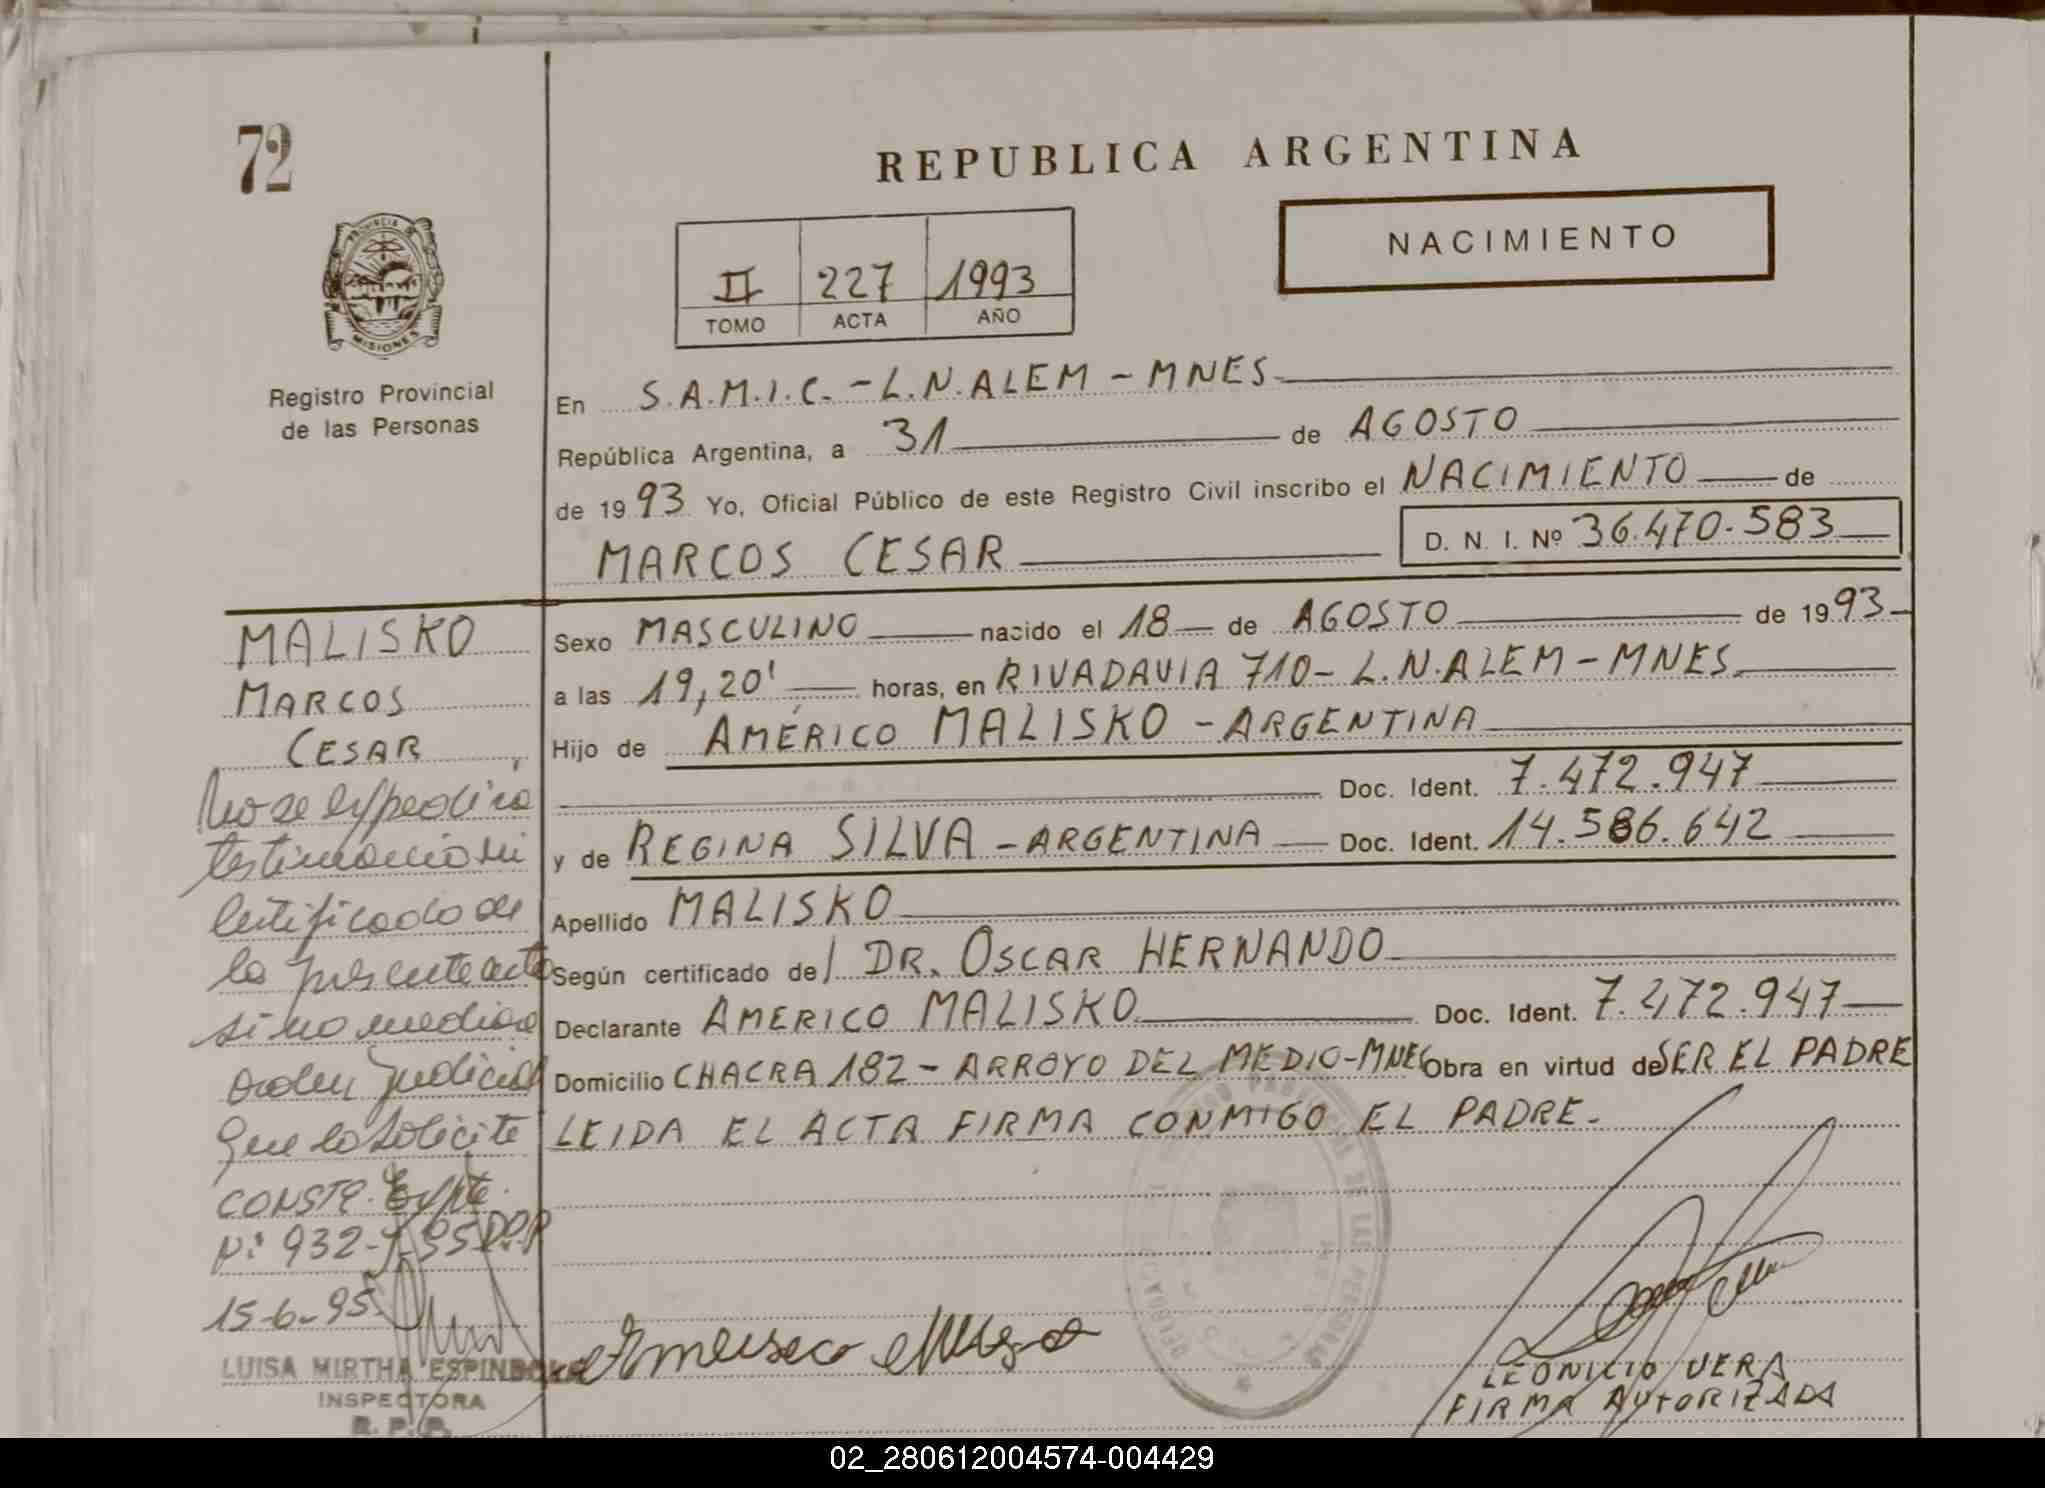 72
REPUBLICA ARGENTINA
NACIMIENTO
II 227 1993
TOMO ACTA AÑO
PROVINCIA DE
MISIONES
Registro Provincial
de las Personas
En S.A.M.I.C. - L.N.ALEM - MNES
República Argentina, a 31 de AGOSTO
de 1993 Yo, Oficial Público de este Registro Civil inscribo el NACIMIENTO de
MARCOS CESAR D. N. I. Nº 36.470.583
MALISKO
MARCOS
CESAR
Sexo MASCULINO nacido el 18 de AGOSTO de 1993
a las 19,20' horas, en RIVADAVIA 710 - L.N.ALEM - MNES
Hijo de AMÉRICO MALISKO - ARGENTINA
Doc. Ident. 7.472.947
y de REGINA SILVA - ARGENTINA Doc. Ident. 14.586.642
Apellido MALISKO
Según certificado del DR. OSCAR HERNANDO
Declarante AMERICO MALISKO Doc. Ident. 7.472.947
Domicilio CHACRA 182 - ARROYO DEL MEDIO - MNES Obra en virtud de SER EL PADRE
LEIDA EL ACTA FIRMA CONMIGO EL PADRE.
No se expedira
testimonio ni
Certificado de
la presente acta
si no media
orden Judicial
que lo solicite
CONSTE. Expte.
Nº 932- 95 D.O.P
15-6-95
LUISA MIRTHA ESPINDOLA
INSPECTORA
R. P. P.
LEONICIO VERA
FIRMA AUTORIZADA
02_280612004574-004429